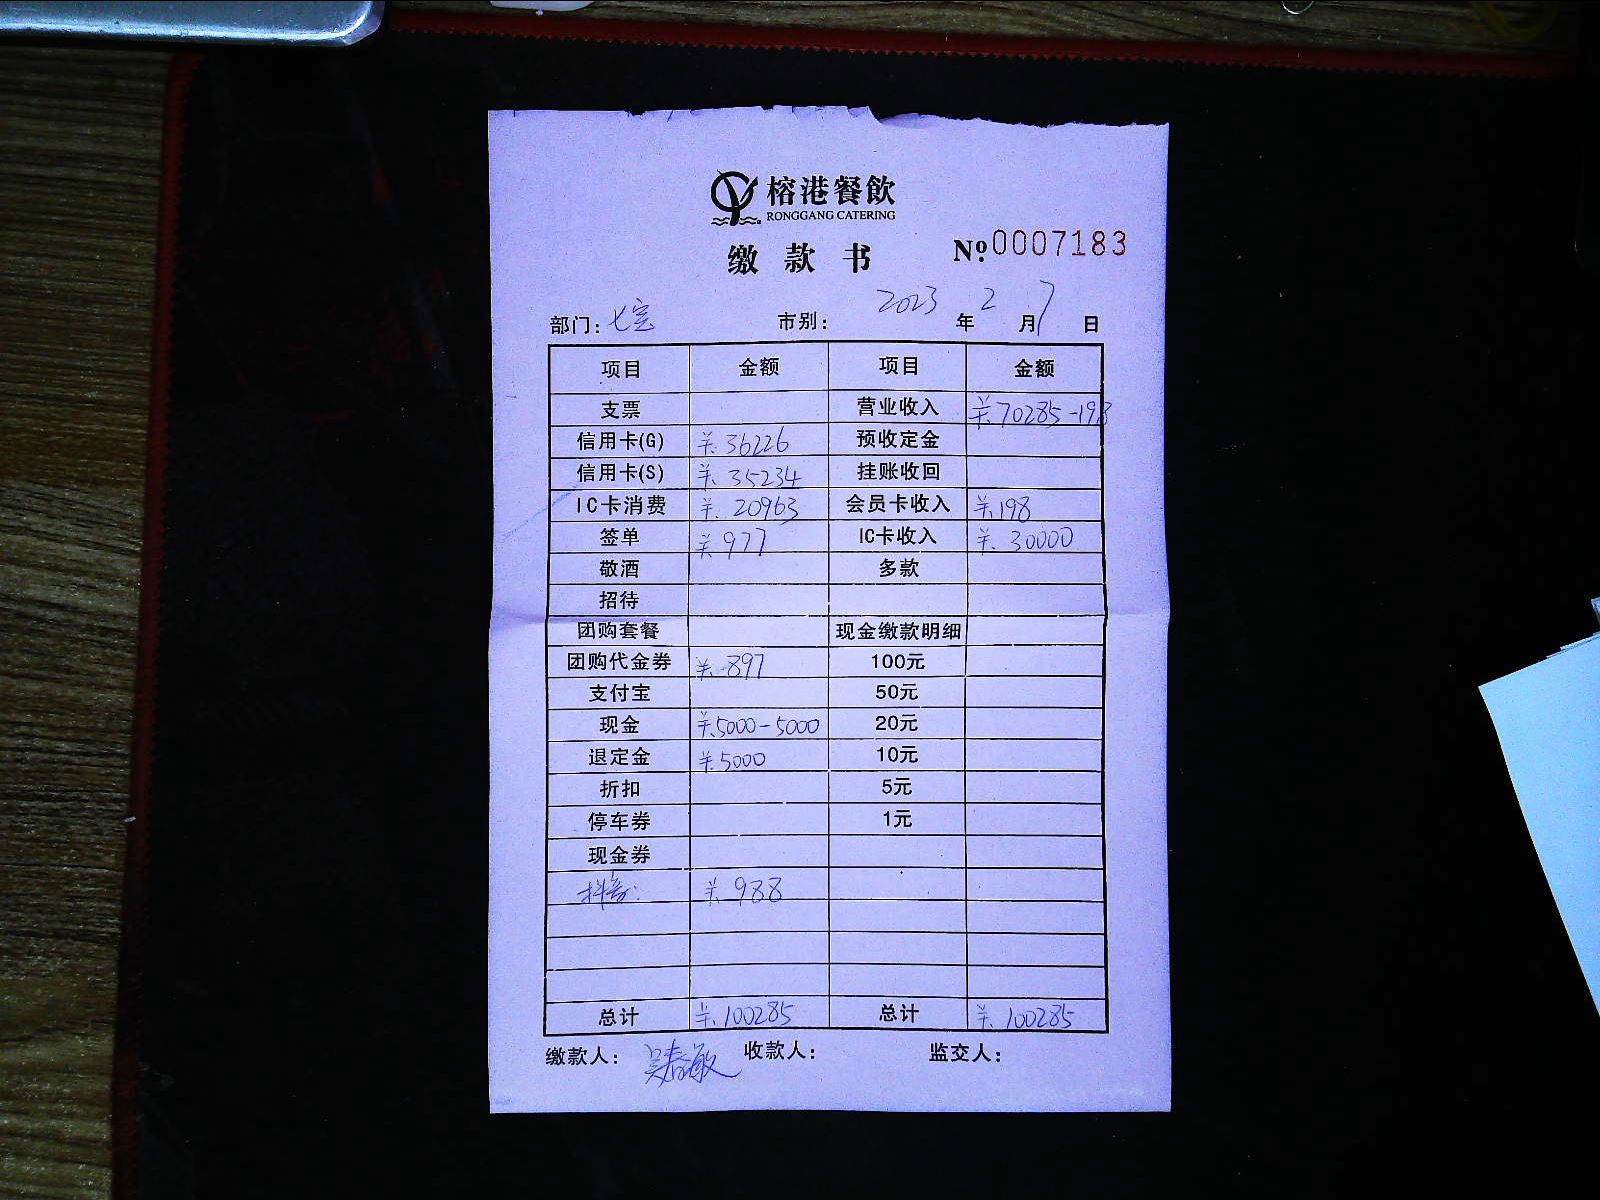 榕港餐飲
RONGGANG CATERING
缴款书 №0007183
部门: 七宝 市别: 2023 年 2 月 7 日
项目 金额 项目 金额
支票 营业收入 ¥70285-198
信用卡(G) ¥.36226 预收定金
信用卡(S) ¥.35234 挂账收回
IC卡消费 ¥.20963 会员卡收入 ¥.198
签单 ¥977 IC卡收入 ¥.30000
敬酒 多款
招待
团购套餐 现金缴款明细
团购代金券 ¥.897 100元
支付宝 50元
现金 ¥.5000-5000 20元
退定金 ¥.5000 10元
折扣 5元
停车券 1元
现金券
抖音: ¥.988
总计 ¥.100285 总计 ¥.100285
缴款人: 吴春敏 收款人: 监交人: